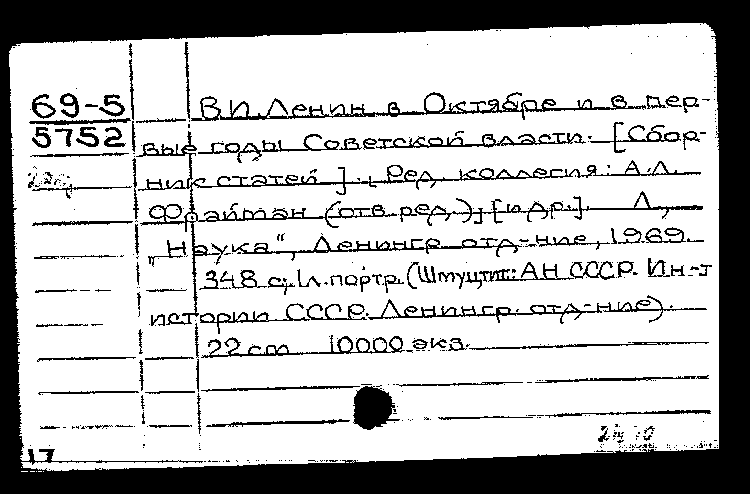 69-5
5752
В.И. Ленин в Октябре и в пер-
вые годы Советской власти. [Сбор-
ник статей]. Ред. коллегия: А.Л.
Фрайман (отв. ред.) [и др.]. Л.,
„Наука“, Ленингр. отд-ние, 1969.
348 с.; 1 л. портр. (Шмуцтит.: АН СССР. Ин-т
истории СССР. Ленингр. отд-ние).
22 cm 10000 экз.
17